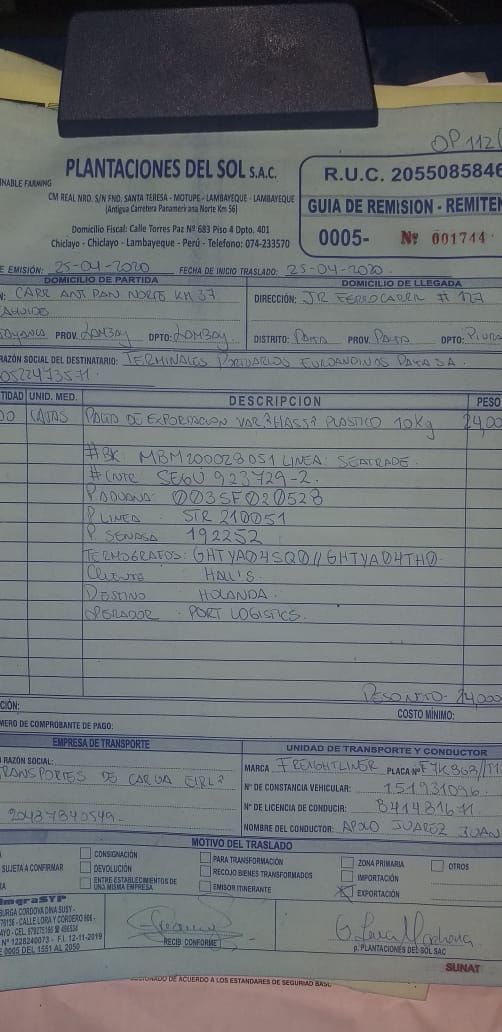 OP 112
PLANTACIONES DEL SOL S.A.C.
NABLE FARMING
CM REAL NRO. S/N FND. SANTA TERESA - MOTUPE - LAMBAYEQUE - LAMBAYEQUE
(Antigua Carretera Panamericana Norte Km 56)
Domicilio Fiscal: Calle Torres Paz Nº 683 Piso 4 Dpto. 401
Chiclayo - Chiclayo - Lambayeque - Perú - Telefono: 074-233570
R.U.C. 2055085846
GUIA DE REMISION - REMITEN
0005- Nº 001744
E EMISIÓN: 25-04-2020 FECHA DE INICIO TRASLADO: 25-04-2020
DOMICILIO DE PARTIDA
DOMICILIO DE LLEGADA
N: CARR ANT PAN NORTE KM 37
DIRECCIÓN: JR FERROCARRIL # 127
PROV. LAMBAY DPTO: LAMBAY
DISTRITO: PAITA PROV. PAITA DPTO: PIURA
RAZÓN SOCIAL DEL DESTINATARIO: TERMINALES PORTUARIOS EUROANDINOS PAITA SA.
0522473571
TIDAD UNID. MED. DESCRIPCION PESO
00 CAJAS PALTO DE EXPORTACION VAR "HASS" PLASTICO 10Kg 24,00
#BK MBM200028051 LINEA: SEATRADE
#CNTR SEGU 923729-2.
P ADUANA: 003SF020528
P LINEA STR 210051
P SENASA 192252
TERMOGRAFOS: GHTYA04SQ0 // GHTYA04TH0
CLIENTE HALL'S
DESTINO HOLANDA
OPERADOR PORT LOGISTICS
PESO NETO- 24,000
CIÓN:
COSTO MÍNIMO:
MERO DE COMPROBANTE DE PAGO:
EMPRESA DE TRANSPORTE
UNIDAD DE TRANSPORTE Y CONDUCTOR
RAZÓN SOCIAL:
TRANSPORTES DE CARGA EIRL
20437340549
MARCA FREIGHTLINER PLACA Nº F7K868/T1
N° DE CONSTANCIA VEHICULAR: 151931096
N° DE LICENCIA DE CONDUCIR: B41481671
NOMBRE DEL CONDUCTOR: APOLO JUAREZ JUAN
MOTIVO DEL TRASLADO
CONSIGNACIÓN
PARA TRANSFORMACIÓN
ZONA PRIMARIA
OTROS
SUJETA A CONFIRMAR
DEVOLUCIÓN
RECOJO BIENES TRANSFORMADOS
IMPORTACIÓN
ENTRE ESTABLECIMIENTOS DE UNA MISMA EMPRESA
EMISOR ITINERANTE
EXPORTACIÓN
ImgraSYP
BURGA CORDOVA DINA SUSY -
76136 - CALLE LORA Y CORDERO 806 -
AYO - CEL. 979275166 # 496534
Nº 1228240073 - F.I. 12-11-2019
0005 DEL 1551 AL 2050
RECIBI CONFORME
p. PLANTACIONES DEL SOL SAC
SUNAT
DE ACUERDO A LOS ESTANDARES DE SEGURIDAD BASC